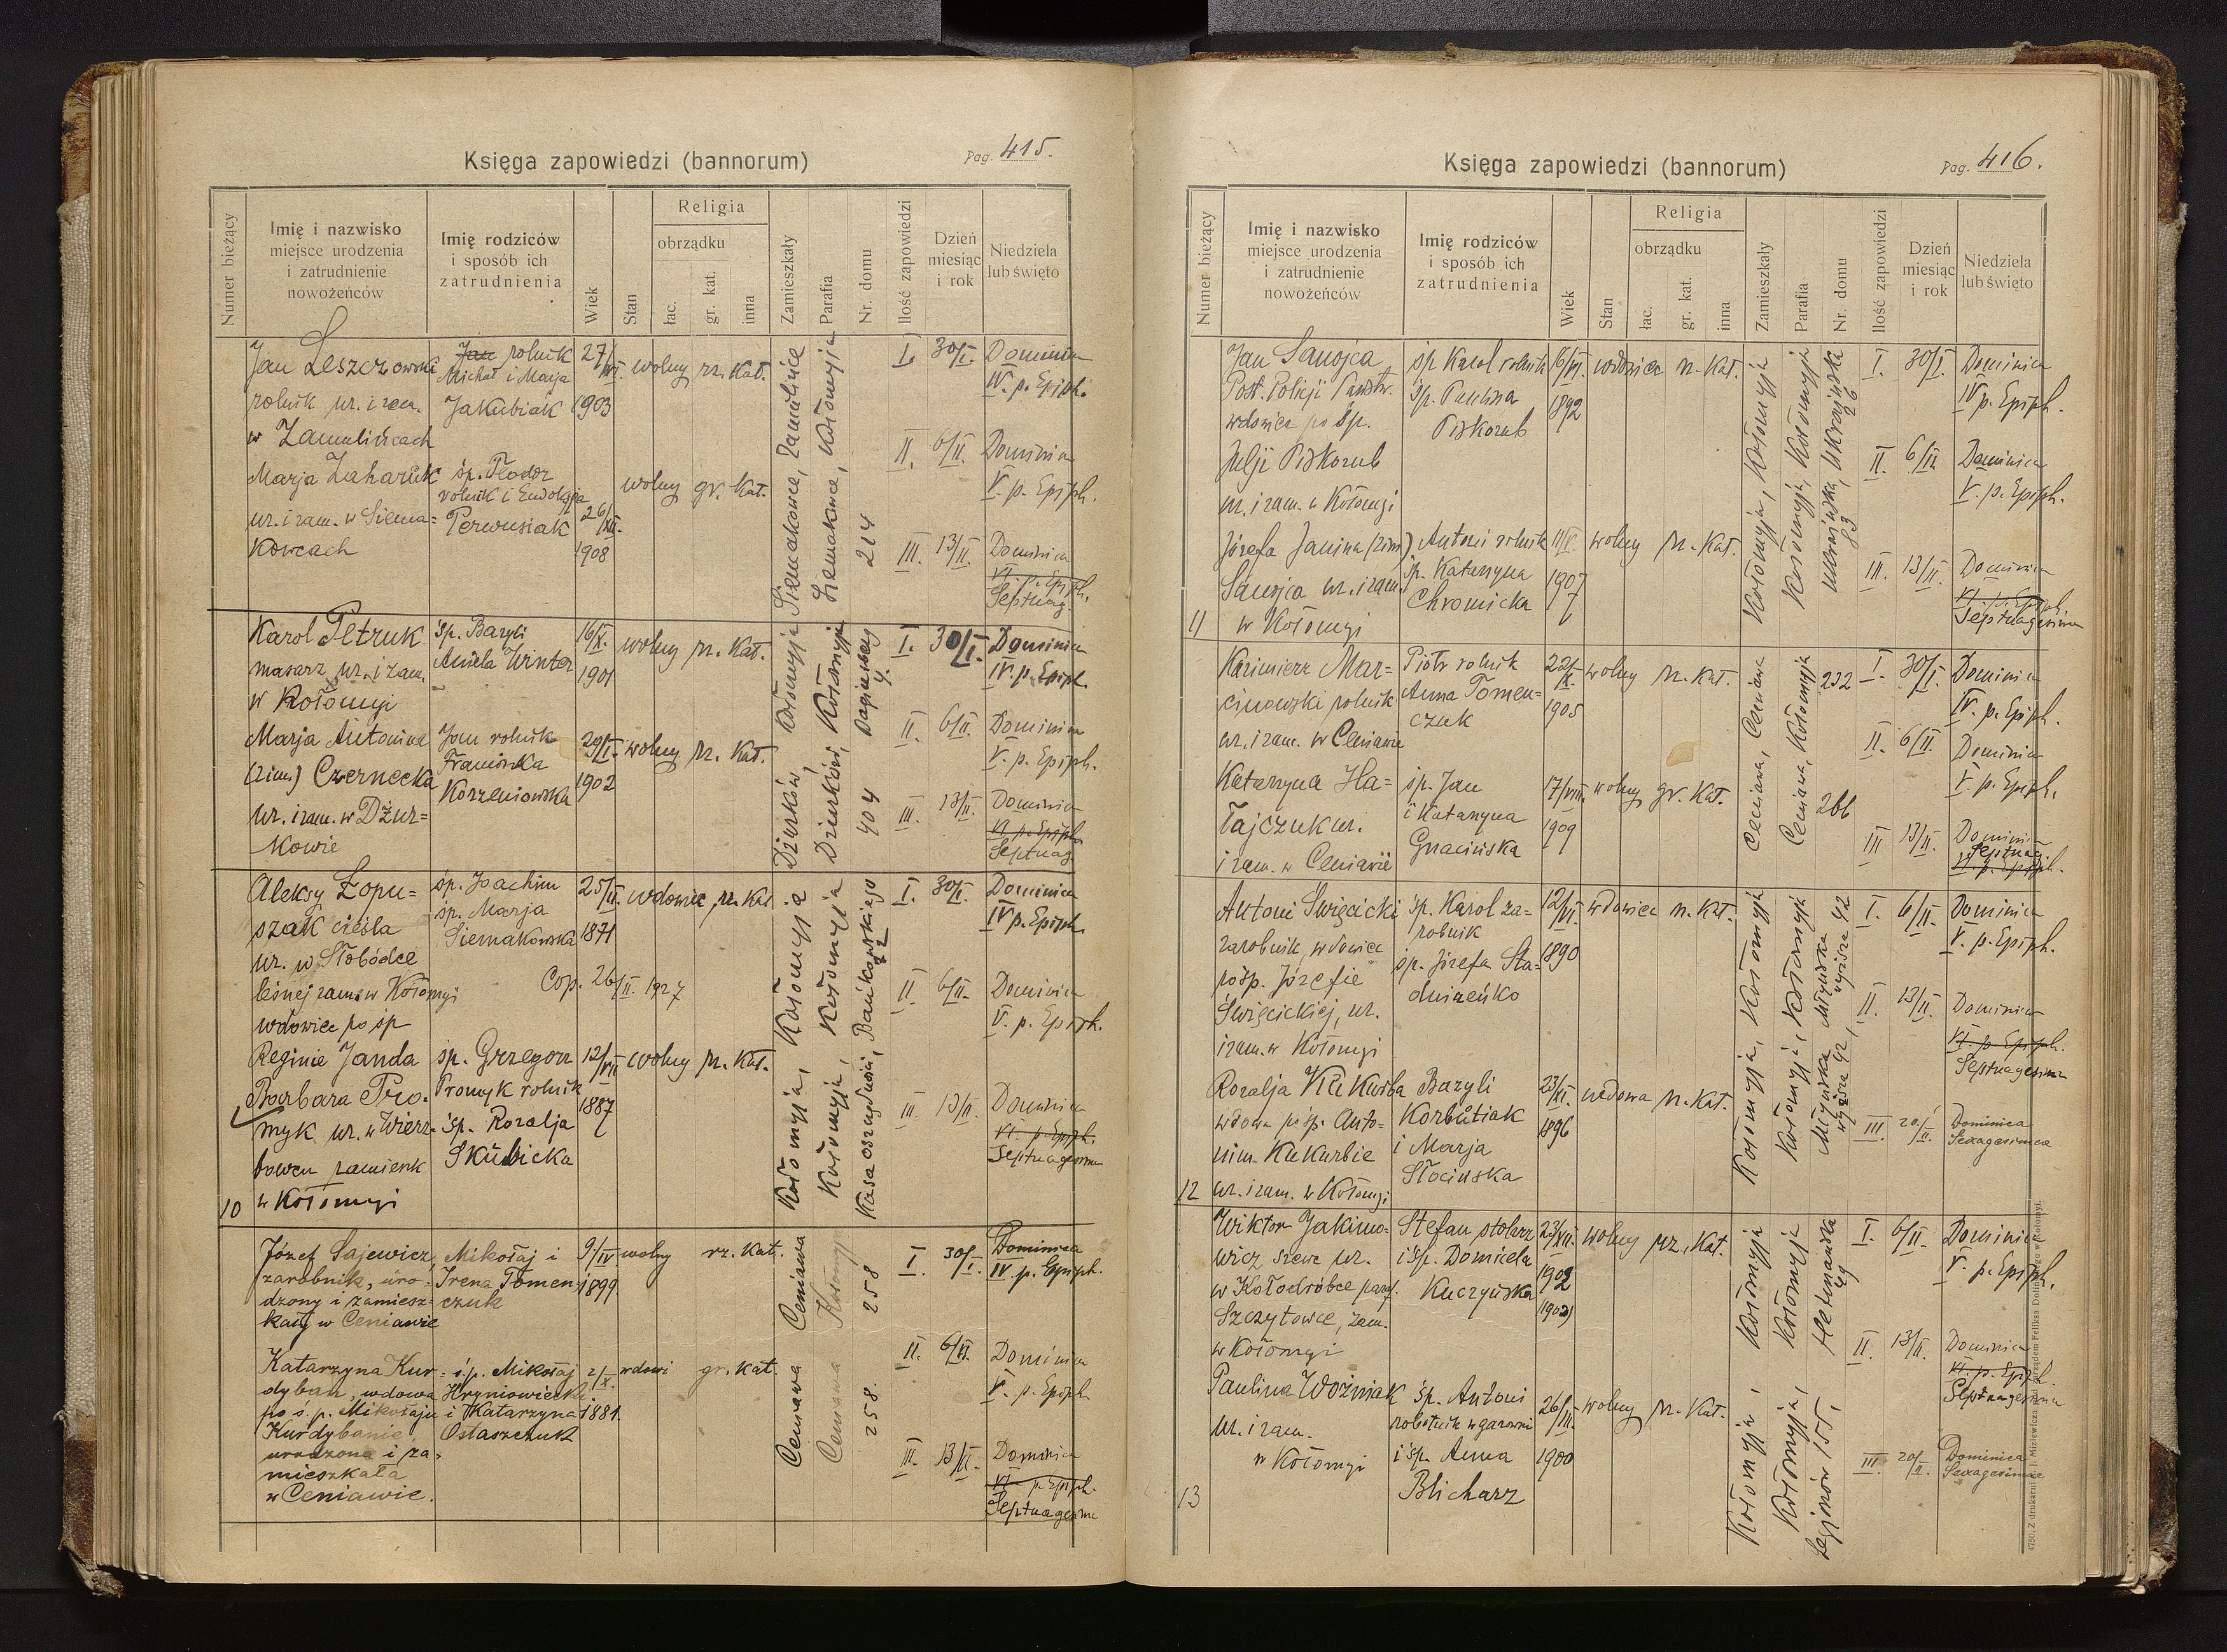 Księga zapowiedzi (bannorum)
Pag. 415.
Numer bieżący
Imię i nazwisko
miejsce urodzenia
i zatrudnienie
nowożeńców
Imię rodziców
i sposób ich
zatrudnienia
Wiek
Stan
Religia
obrządku
łac.
gr. kat.
inna
Zamieszkały
Parafia
Nr. domu
Ilość zapowiedzi
Dzień
miesiąc
i rok
Niedziela
lub święto
Jan Leszczowski
rolnik ur. i zam.
w Zamulińcach
Jan rolnik
Michał i Marja
Jakubiak
27/VI.
1903
wolny rz. Kat.
Marja Zaharuk
ur. i zam. w Siema=
kowcach
śp. Teodor
rolnik i Eudokja
Perwusiak
26/XI.
1908
wolny gr. Kat.
Siemakowce, Zamulińce
Siemakowce, Kołomyja
214
I. 30/I. Dominica
IV. p. Epiph.
II. 6/II. Dominica
V. p. Epiph.
III. 13/II. Dominica
VI. p. Epiph.
Septuag.
Karol Petruk
masarz, ur. i zam.
w Kołomyi
śp. Bazyli
Aniela Winter
16/X.
1901
wolny rz. Kat.
Marja Antonina
(2im.) Czernecka
ur. i zam. w Dżur=
kowie
Jan rolnik
Franciszka
Korzeniowska
29/I.
1902
wolny rz. Kat.
Dżurków, Kołomyja
Dżurków, Kołomyja
404
4.
I. 30/I. Dominica
IV. p. Epiph.
II. 6/II. Dominica
V. p. Epiph.
III. 13/II. Dominica
VI p. Epiph.
Septuag.
Aleksy Łopu=
szak cieśla
ur. w Słobódce
leśnej zam. w Kołomyi
wdowiec po śp
Reginie Janda
śp. Joachim
śp. Marja
Siemakowska
25/III.
1871
wdowiec rz. Kat
Cop. 26/II. 1927
Barbara Pro=
myk ur. w Wierz=
bowcu zamieszk
10 w Kołomyi
śp. Grzegorz
Promyk rolnik
śp. Rozalja
Skubicka
12/VIII
1887
wolny rz. Kat.
Kołomyja, Kołomyja
Kołomyja, Kołomyja
Kasa oszczędności, Bańkowskiego
I. 30/I. Dominica
IV p. Epiph.
II 6/II. Dominica
V. p. Epiph.
III. 13/II. Dominica
VI. p. Epiph.
Septuagesima
Józef Sajewicz,
zarobnik, uro-
dzony i zamiesz-
kały w Ceniawie
Mikołaj i
Irena Tomen-
czuk
9/IV
1899
wolny rz. Kat.
Katarzyna Kur-
dyban, wdowa
po ś.p. Mikołaju
Kurdybanie,
urodzona i za-
mieszkała
w Ceniawie.
ś.p. Mikołaj
Hryniowiecki
i Katarzyna
Ostaszczuk
2/X.
1881.
wdowi gr. Kat.
Ceniawa Ceniawa
Ceniawa Kołomyja
258. 258
I. 30/I. Dominica
IV. p. Epiph.
II. 6/II. Dominica
V. p. Epiph.
III. 13/II. Dominica
VI p. Epiph.
Septuagesima
Księga zapowiedzi (bannorum)
Pag. 416.
Numer bieżący
Imię i nazwisko
miejsce urodzenia
i zatrudnienie
nowożeńców
Imię rodziców
i sposób ich
zatrudnienia
Wiek
Stan
Religia
obrządku
łac.
gr. kat.
inna
Zamieszkały
Parafia
Nr. domu
Ilość zapowiedzi
Dzień
miesiąc
i rok
Niedziela
lub święto
Jan Sanojca
Post. Policji Państw.
wdowiec po śp.
Julji Piskozub
ur. i zam. w Kołomyi
śp Karol rolnik
śp. Paulina
Piskozub
16/VI.
1892
wdowiec rz. Kat.
Józefa Janina (2im)
Sanojca ur. i zam.
11 w Kołomyi
Antoni rolnik
śp. Katarzyna
Chromicka
1907
wolny rz. Kat.
Kołomyja, Kołomyja
Kołomyja, Kołomyja
Ukraińska, Ukraińska
83 26
I. 30/I. Dominica
IV p. Epiph.
II. 6/II Dominica
V. p. Epiph.
III. 13/II. Dominica
VI. p. Epiph.
Septuagesima
Kazimierz Mar=
cinowski rolnik
ur. i zam. w Ceniawie
Piotr rolnik
Anna Tomen=
czuk
1905
wolny rz. Kat.
Katarzyna Ha=
łajczuk ur.
i zam. w Ceniawie
śp. Jan
i Katarzyna
Gnacińska
17/VIII.
1909
wolny gr. Kat.
Ceniawa, Ceniawa
Ceniawa, Kołomyja
266 232
I 30/I. Dominica
IV. p. Epiph.
II. 6/II. Dominica
V. p. Epiph.
III 13/II. Dominica
Septuag.
VI. p. Epiph.
Antoni Święcicki
zarobnik, wdowiec
po śp. Józefie
Święcickiej, ur.
i zam. w Kołomyi
śp. Karol za=
robnik
śp. Józefa Sta=
dniczeńko
12/VI.
1890
wdowiec rz. Kat.
Rozalja Kukurba
wdowa po śp. Anto=
nim Kukurbie
12 ur. i zam. w Kołomyi
Bazyli
Korbutiak
i Marja
Słocińska
23/XI.
1896
wdowa rz. Kat.
Kołomyja, Kołomyja
Kołomyja, Kołomyja
Młyńska Młyńska
wyższa 42, wyższa 42
I. 6/II. Dominica
V. p. Epiph.
II. 13/II. Dominica
VI. p. Epiph.
Septuagesima
III. 20/II. Dominica
Sexagesimea
Wiktor Jakimo=
wicz szewc ur.
w Kołodróbce paraf.
Szczytowce, zam.
w Kołomyi
Stefan stolarz
i śp. Domicela
Kuczyńska
23/VII.
1902
(1902)
wolny rz. Kat.
Paulina Woźniak
ur. i zam.
w Kołomyi
13
śp. Antoni
robotnik w garowni
i śp. Anna
Blicharz
26/III.
1900
wolny rz. Kat.
Kołomyja, Kołomyja
Kołomyja, Kołomyja
Legjonów 155, Hetmańska
49
I. 6/II. Dominica
V. p. Epiph.
II. 13/II. Dominica
VI. p. Epiph.
Septuagesima
III. 20/II. Dominica
Sexagesimae